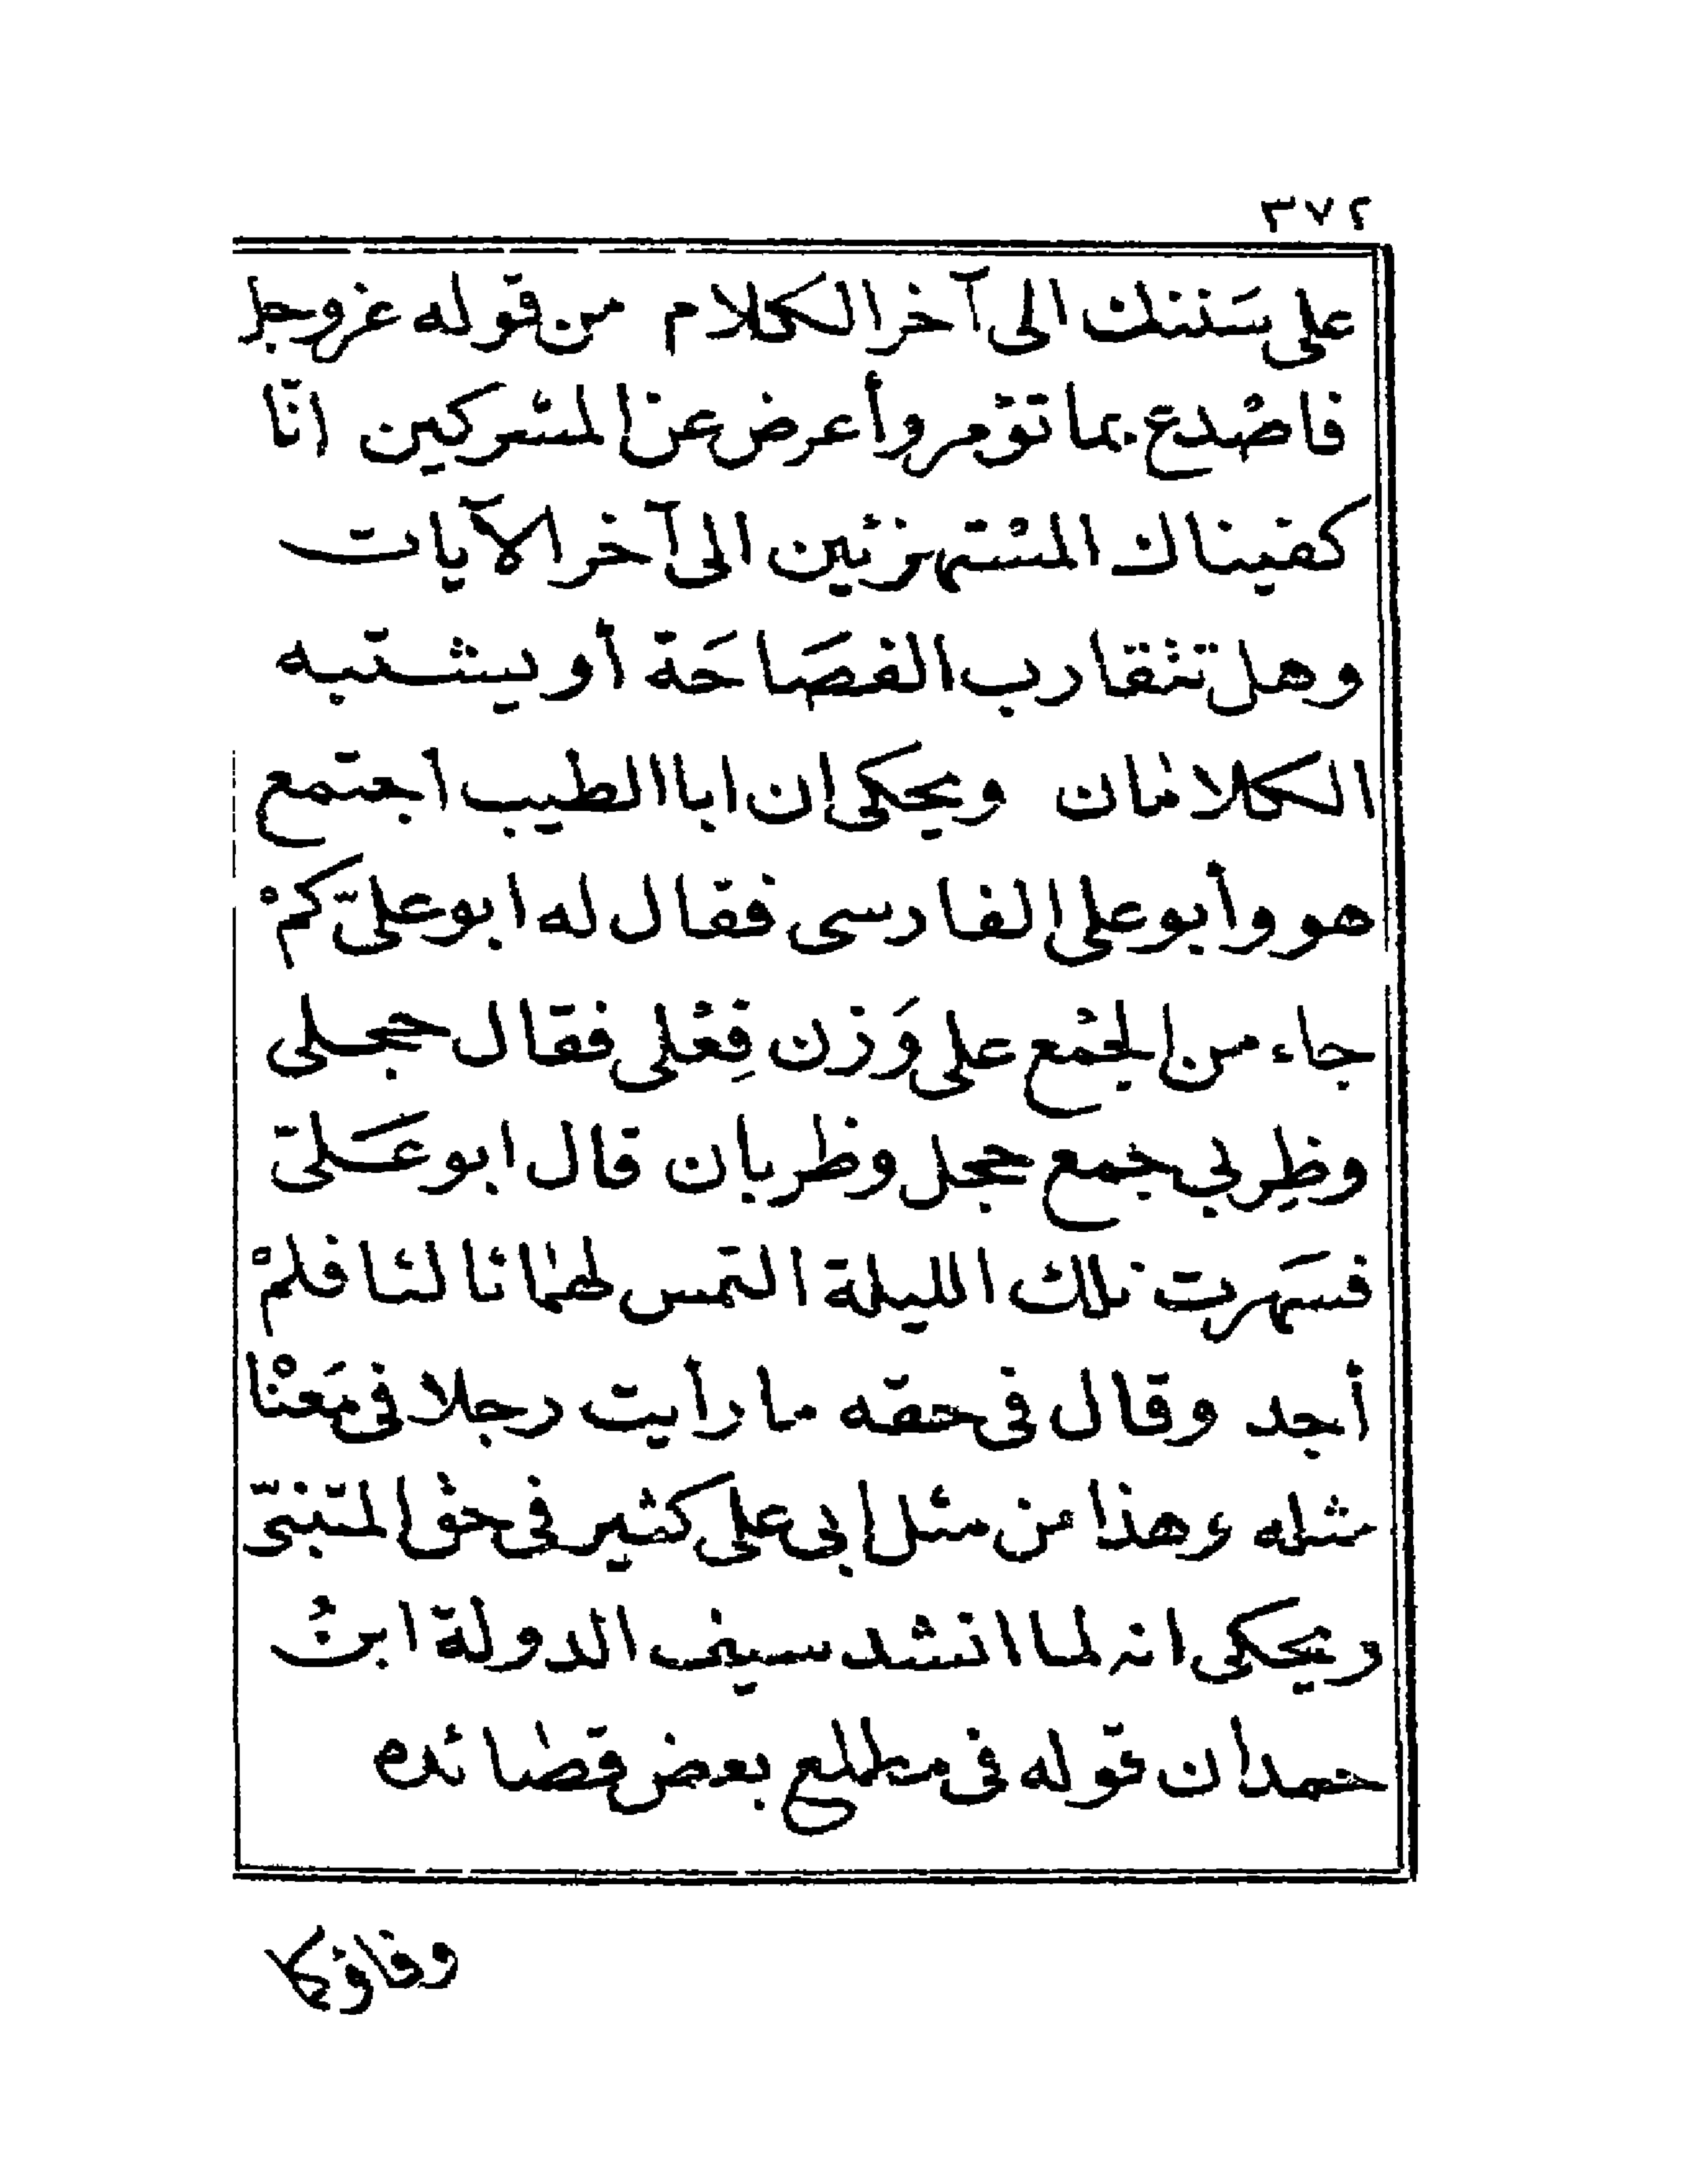 ٣٧٢
على سَننك الى آخر الكلام من قوله عز وجل
فاصْدع بما تؤمر وأعرض عن المشركين انّا
كفيناك المستهزئين الى آخر الآيات
وهل تتقارب الفصَاحَة أو يشتبه
الكلامان ويحكى ان ابا الطيب اجتمع
هو وأبو على الفارسى فقال له ابو علىّ كمْ
جاء من الجمْع على وَزن فِعْلى فقال حجلى
وظِربى جمع حجل وظربان قال ابو عَلىّ
فسَهرت تلك الليلة التمس لهما ثالثا فلمْ
أجد وقال فى حقه ما رأيت رجلا فى مَعْنا
مثله وهذا من مثل ابى على كثير فى حق المتنبىّ
ويحكى انه لما انشد سيف الدولة ابنُ
حمدان قوله فى مطلع بعض قصائده
وفاؤكما